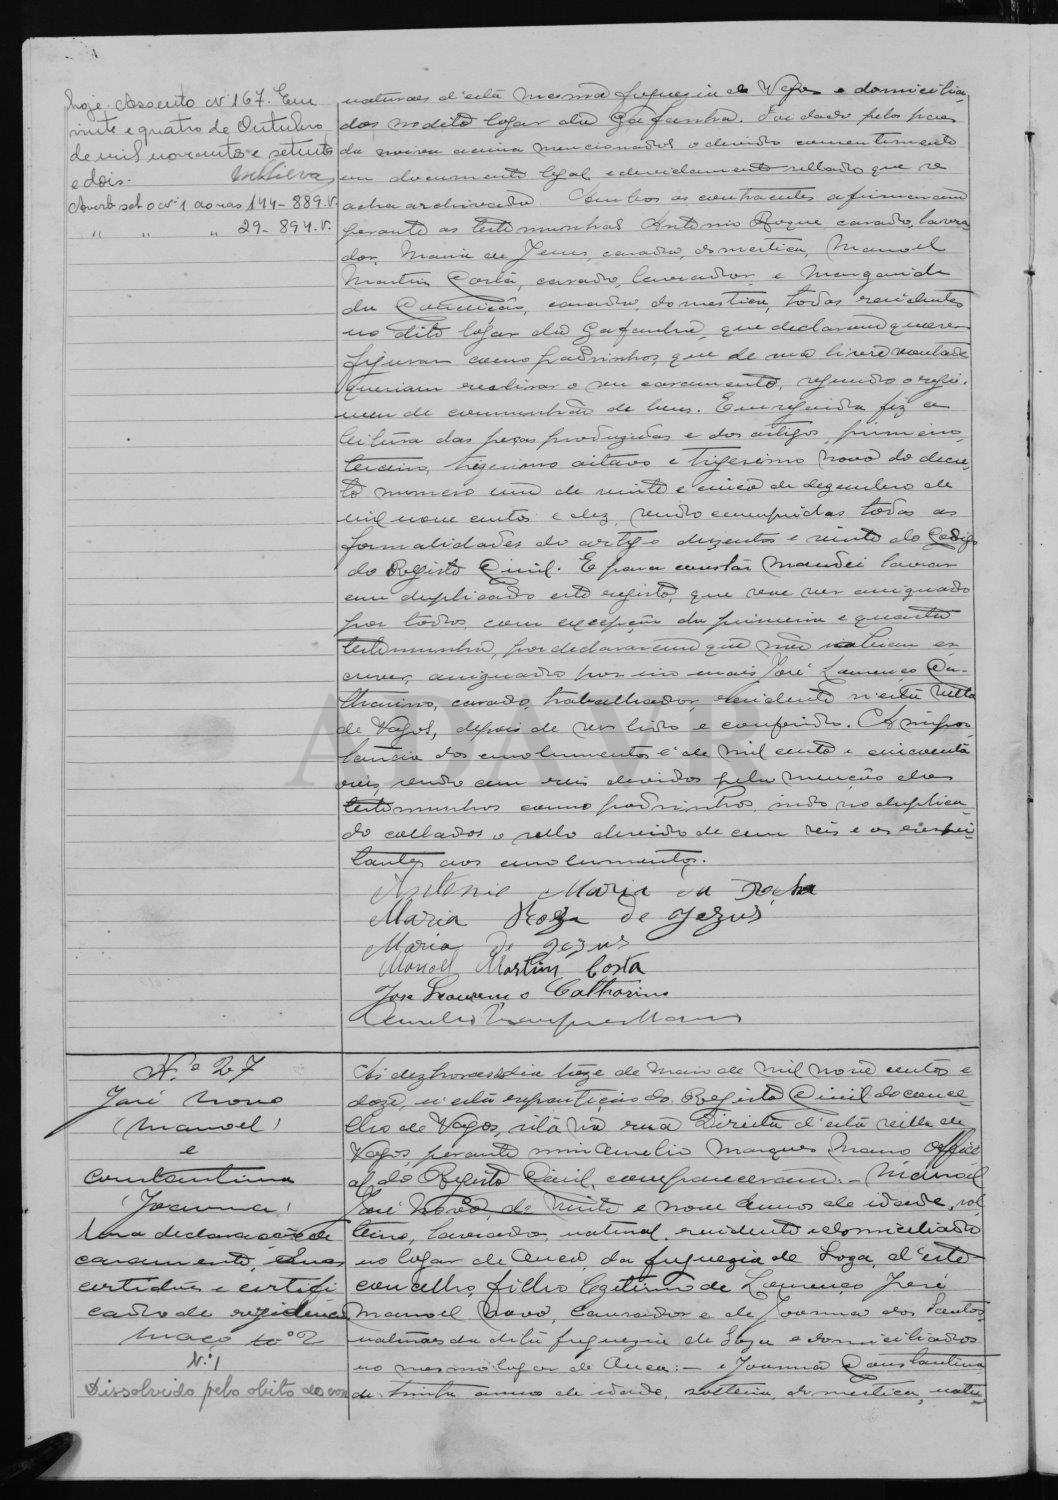 hoje. Assento nº 167. Em
vinte e quatro de Outubro
de mil novecentos e setenta
e dois.
Averb. sob o nº 1 a o nas 144 - 889. V.
" " " 29 - 894. V.
naturaes d'esta mesma freguezia de Vagos e domicilia-
dos no dito logar da Gafanha. Foi dado pelos paes
da noiva acima mencionados o devido consentimento
em documento legal e devidamente sellado que se
acha archivado. Ambos os contraentes afirmaram
perante as testemunhas Antonio Roque casado, lavra-
dor, Maria de Jesus, casada, domestica, Manoel
Martins Costa, casado, lavrador, e Margarida
da Conceição, casada, domestica, todos residentes
no dito logar da Gafanha, que declaram querer
figurar como padrinhos, que de sua livre vontade
queriam realisar o seu casamento, segundo o regi-
men de communhão de bens. Em seguida fiz a
leitura das peças produzidas e dos artigos, primeiro,
terceiro, trigesimo oitavo e trigesimo nono do decre-
to numero um de vinte e cinco de dezembro de
mil nove centos e dez, sendo cumpridas todas as
formalidades do artigo duzentos e vinte do Codigo
do Registo Civil. E para constar mandei lavrar
em duplicado este registo, que vae ser assignado
por todos, com excepção da primeira e quarta
testemunha, por declararem que não sabiam es-
crever, assignando por isso mais José Lourenço Ca-
tharino, casado, trabalhador residente n'esta villa
de Vagos, depois de ser lido e conferido. A impor-
tancia dos emolumentos é de mil cento e cincoenta
reis, sendo cem reis devidos pela menção das
testemunhas como padrinhos, indo no duplica-
do collados o sello devido de cem reis e os respei-
tantes aos emolumentos.
Antonio Maria da Rocha
Maria Roza de Jezus
Maria de Jezus
Manoel Martins Costa
Jose Lourenço Catharino
ADAVR
N.º 27
José Novo
(Manoel)
e
Constantina
(Joanna)
Uma declaração de
casamento, duas
certidões e certifi
cado de residencia
Maço nº 2
N.º 1
Dissolvido pelo obito do con
Ás dez horas do dia treze de Maio de mil nove centos e
doze, n'esta repartição do Registo Civil do conce-
lho de Vagos, sita na rua Direita d'esta villa de
Vagos, perante mim Aurelio Marques Mano Offici
al do Registo Civil, compareceram: - Manoel
José Novo, de vinte e nove annos de idade, sol
teiro, lavrador, natural, residente e domiciliado
no logar de Ouca, da freguezia de Soza, d'este
concelho, filho legitimo de Lourenço José
Manoel Novo, lavrador e de Joanna dos Santos
naturaes da dita freguezia de Soza e domiciliados
no mesmo logar de Ouca: - e Joanna Constantina
de trinta annos de idade, solteira, domestica, natu-